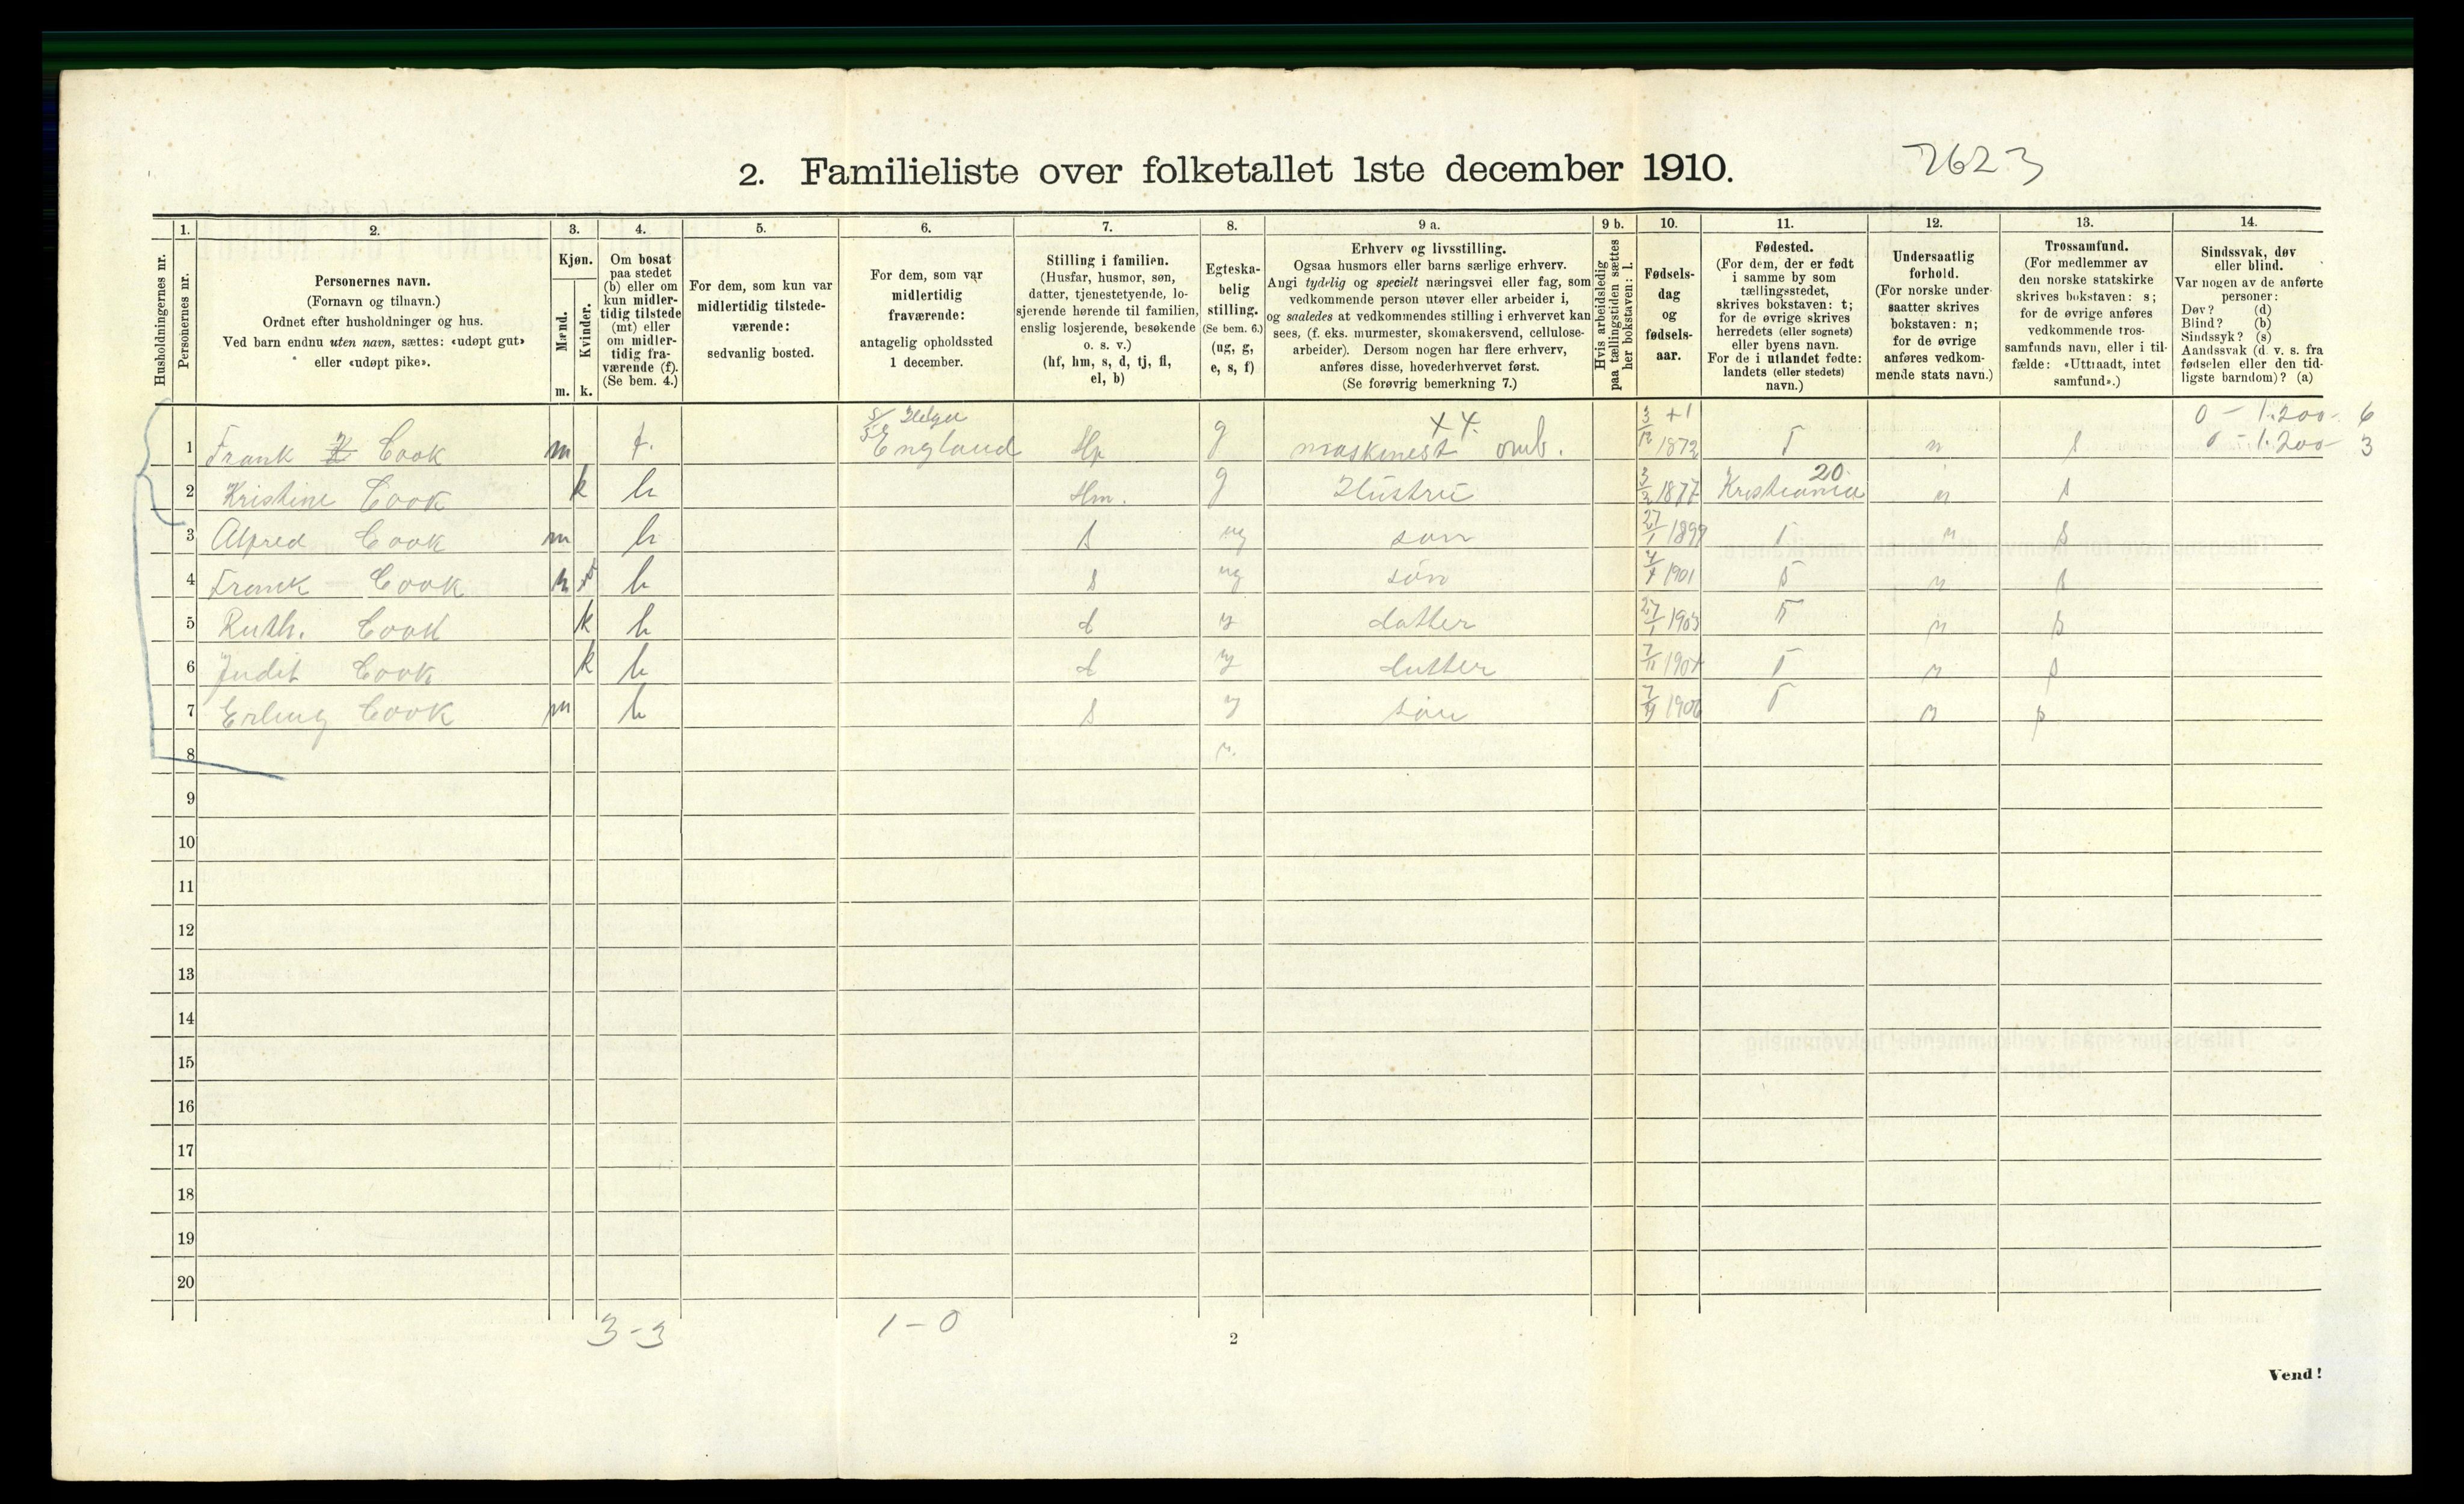 2. Familieliste over folketallet 1ste december 1910.
2623
Husholdningernes nr.
1.
Personernes nr.
2.
Personernes navn.
(Fornavn og tilnavn.)
Ordnet efter husholdninger og hus.
Ved barn endnu uten navn, sættes: «udøpt gut»
eller «udøpt pike».
3.
Kjøn.
Mænd.
m.
Kvinder.
k.
4.
Om bosat
paa stedet
(b) eller om
kun midler-
tidig tilstede
(mt) eller
om midler-
tidig fra-
værende (f).
(Se bem. 4.)
5.
For dem, som kun var
midlertidig tilstede-
værende:
sedvanlig bosted.
6.
For dem, som var
midlertidig
fraværende:
antagelig opholdssted
1 december.
7.
Stilling i familien.
(Husfar, husmor, søn,
datter, tjenestetyende, lo-
sjerende hørende til familien,
enslig losjerende, besøkende
o. s. v.)
(hf, hm, s, d, tj, fl,
el, b)
8.
Egteska-
belig
stilling.
(Se bem. 6.)
(ug, g,
e, s, f)
9 a.
Erhverv og livsstilling.
Ogsaa husmors eller barns særlige erhverv.
Angi tydelig og specielt næringsvei eller fag, som
vedkommende person utøver eller arbeider i,
og saaledes at vedkommendes stilling i erhvervet kan
sees, (f. eks. murmester, skomakersvend, cellulose-
arbeider). Dersom nogen har flere erhverv,
anføres disse, hovederhvervet først.
(Se forøvrig bemerkning 7.)
9 b.
Hvis arbeidsledig
paa tællingstiden sættes
her bokstaven: l.
10.
Fødsels-
dag
og
fødsels-
aar.
11.
Fødested.
(For dem, der er født
i samme by som
tællingsstedet,
skrives bokstaven: t;
for de øvrige skrives
herredets (eller sognets)
eller byens navn.
For de i utlandet fødte:
landets (eller stedets)
navn.)
12.
Undersaatlig
forhold.
(For norske under-
saatter skrives
bokstaven: n;
for de øvrige
anføres vedkom-
mende stats navn.)
13.
Trossamfund.
(For medlemmer av
den norske statskirke
skrives bokstaven: s;
for de øvrige anføres
vedkommende tros-
samfunds navn, eller i til-
fælde: «Uttraadt, intet
samfund».)
14.
Sindssvak, døv
eller blind.
Var nogen av de anførte
personer:
Døv? (d)
Blind? (b)
Sindssyk? (s)
Aandssvak (d. v. s. fra
fødselen eller den tid-
ligste barndom)? (a)
S/S Helga x 4. +1 0 - 1.200- 6
1 Frank Cook m f. England Hf g maskinest 3/12 1872 T n s 0 - 1.200- 3
2 Kristine Cook k b Hm. g Hustru 3/2 1877 Kristiania 20 n s
3 Alfred Cook m b s ug søn 27/1 1899 T n s
4 Frank Cook m b s ug søn 1901 T n s
5 Ruth. Cook k b d datter 27/1 1903 T n s
6 Judit Cook k b d datter 7/11 1904 T n s
7 Erling Cook m b s søn 1906 T n s
8
9
10
11
12
13
14
15
16
17
18
19
20
3-3 1-0
2
Vend!